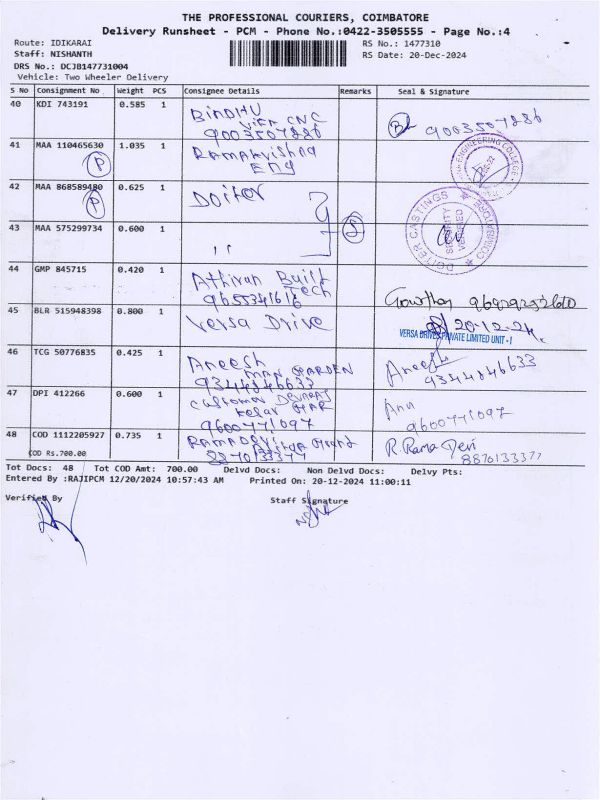 THE PROFESSIONAL COURIERS, COIMBATORE
Delivery Runsheet - PCM - Phone No.:0422-3505555 - Page No.:4
Route: IDIKARAI
RS No.: 1477310
Staff: NISHANTH
RS Date: 20-Dec-2024
DRS No.: DCJB147731004
Vehicle: Two Wheeler Delivery
S No Consignment No Weight PCS Consignee Details Remarks Seal & Signature
40 KDI 743191 0.585 1 BINDHU
CNC
9003507286 9003507286
41 MAA 110465630 1.035 1 Ramakrishna
Eng
P
ENGINEERING COLLEGE
42 MAA 868589480 0.625 1 Doiter
P
DOITER CASTINGS
SECURITY
VERIFIED
COIMBATORE
43 MAA 575299734 0.600 1 ,, S
44 GMP 845715 0.420 1 Athiran Built
Tech
9655341616
Gowtham
45 BLR 515948398 0.800 1 Versa Drive 20-12-24
VERSA DRIVES PRIVATE LIMITED UNIT - I
46 TCG 50776835 0.425 1 Aneesh Aneesh
MAN GARDEN
9344846633 9344846633
47 DPI 412266 0.600 1 Customer Devaraj
9600771097 9600771097
48 COD 1112205927 0.735 1 RAMADEVI R. Rama Devi
COD Rs.700.00 8870133377 8870133377
Tot Docs: 48 Tot COD Amt: 700.00 Delvd Docs: Non Delvd Docs: Delvy Pts:
Entered By :RAJIPCM 12/20/2024 10:57:43 AM Printed On: 20-12-2024 11:00:11
Verified By Staff Signature